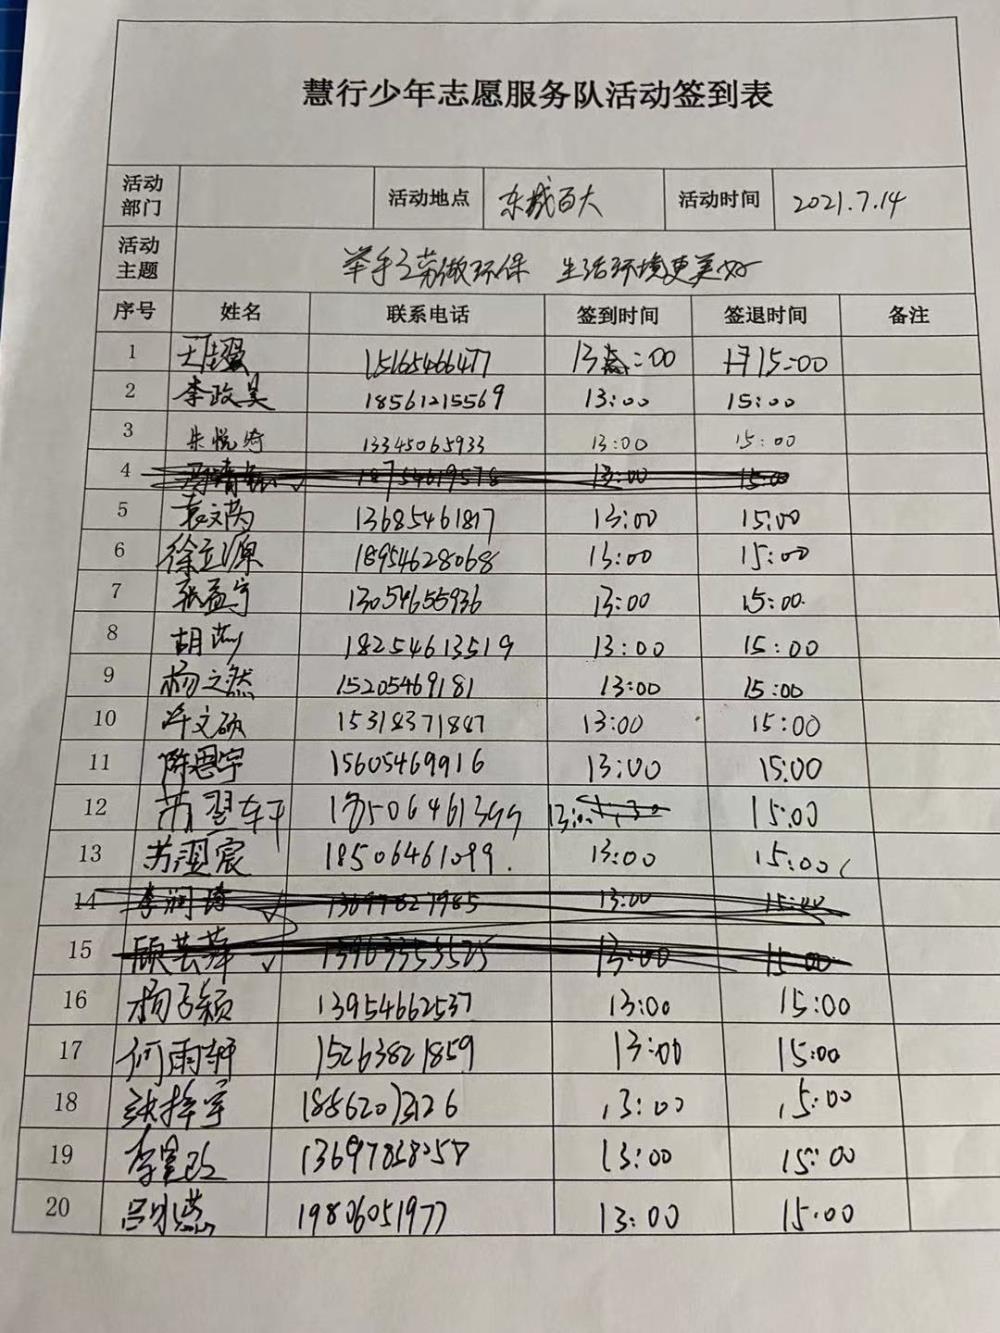 慧行少年志愿服务队活动签到表
活动部门 活动地点 东城百大 活动时间 2021.7.14
活动主题 举手之劳做环保 生活环境更美好
序号 姓名 联系电话 签到时间 签退时间 备注
1 15165466477 13 :00 15:00
2 李政昊 18561215569 13:00 15:00
3 朱悦琦 13345065933 13:00 15:00
4 18754619578 13:00 15:00
5 袁文芮 13685461817 13:00 15:00
6 徐立源 18954628068 13:00 15:00
7 张孟宇 13054655936 13:00 15:00
8 胡 18254613519 13:00 15:00
9 杨之然 15205469181 13:00 15:00
10 许文硕 15318371887 13:00 15:00
11 陈思宇 15605469916 13:00 15:00
12 苏翌轩 13:00 15:00
13 苏翌宸 18506461099 13:00 15:00
14 李润琦 13:00 15:00
15 顾芸菲 13:00 15:00
16 杨子颖 13954662537 13:00 15:00
17 何雨轩 15263821859 13:00 15:00
18 张梓宇 13:00 15:00
19 李 13697858058 13:00 15:00
20 吕水燕 19806051977 13:00 15:00